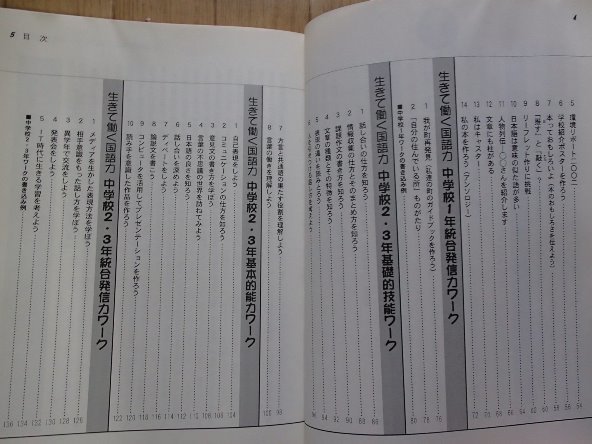 4
5 環境リポート二〇〇二
6 学校紹介ポスターを作ろう
7 本っておもしろいよ（本のおもしろさを伝えよう）
8 「推す」と「敲く」？
9 リーフレット作りに挑戦
10 日本語は意味の似た語が多い
11 人物列伝・〇〇さんを紹介します
12 文章にも性がある
13 私はキャスター
14 私の本を作ろう（アンソロジー）
生きて働く国語力 中学校1年統合発信力ワーク
1 我が町再発見（私達の町のガイドブックを作ろう）
2 「自分の住んでいる所」ものがたり
■中学校1年ワークの書き込み例
生きて働く国語力 中学校2・3年基礎的技能ワーク
1 話し合いの仕方を知ろう
2 情報収集の仕方とそのまとめ方を知ろう
3 課題作文の書き方を知ろう
4 文章の種類とその特徴を知ろう
5 表現の違いを読みとろう
5 目次
7 方言と共通語の果たす役割を理解しよう
8 言葉の働きを理解しよう
生きて働く国語力 中学校2・3年基本的能力ワーク
1 自己表現をしよう
2 コミュニケーションの仕方を知ろう
3 意見文の書き方を学ぼう
4 言葉の不思議の世界を訪ねてみよう
5 日本語の良さを知ろう
6 話し合いを深めよう
7 ディベートをしよう
8 論説文を書こう
9 コンピュータを活用してプレゼンテーションを作ろう
10 読み手を意識した作品を作ろう
生きて働く国語力 中学校2・3年統合発信力ワーク
1 メディアを生かした表現方法を学ぼう
2 相手意識をもった話し方を学ぼう
3 異学年で交流をしよう
4 発表会をしよう
5 IT時代に生きる学習を考えよう
■中学校2・3年ワークの書き込み例